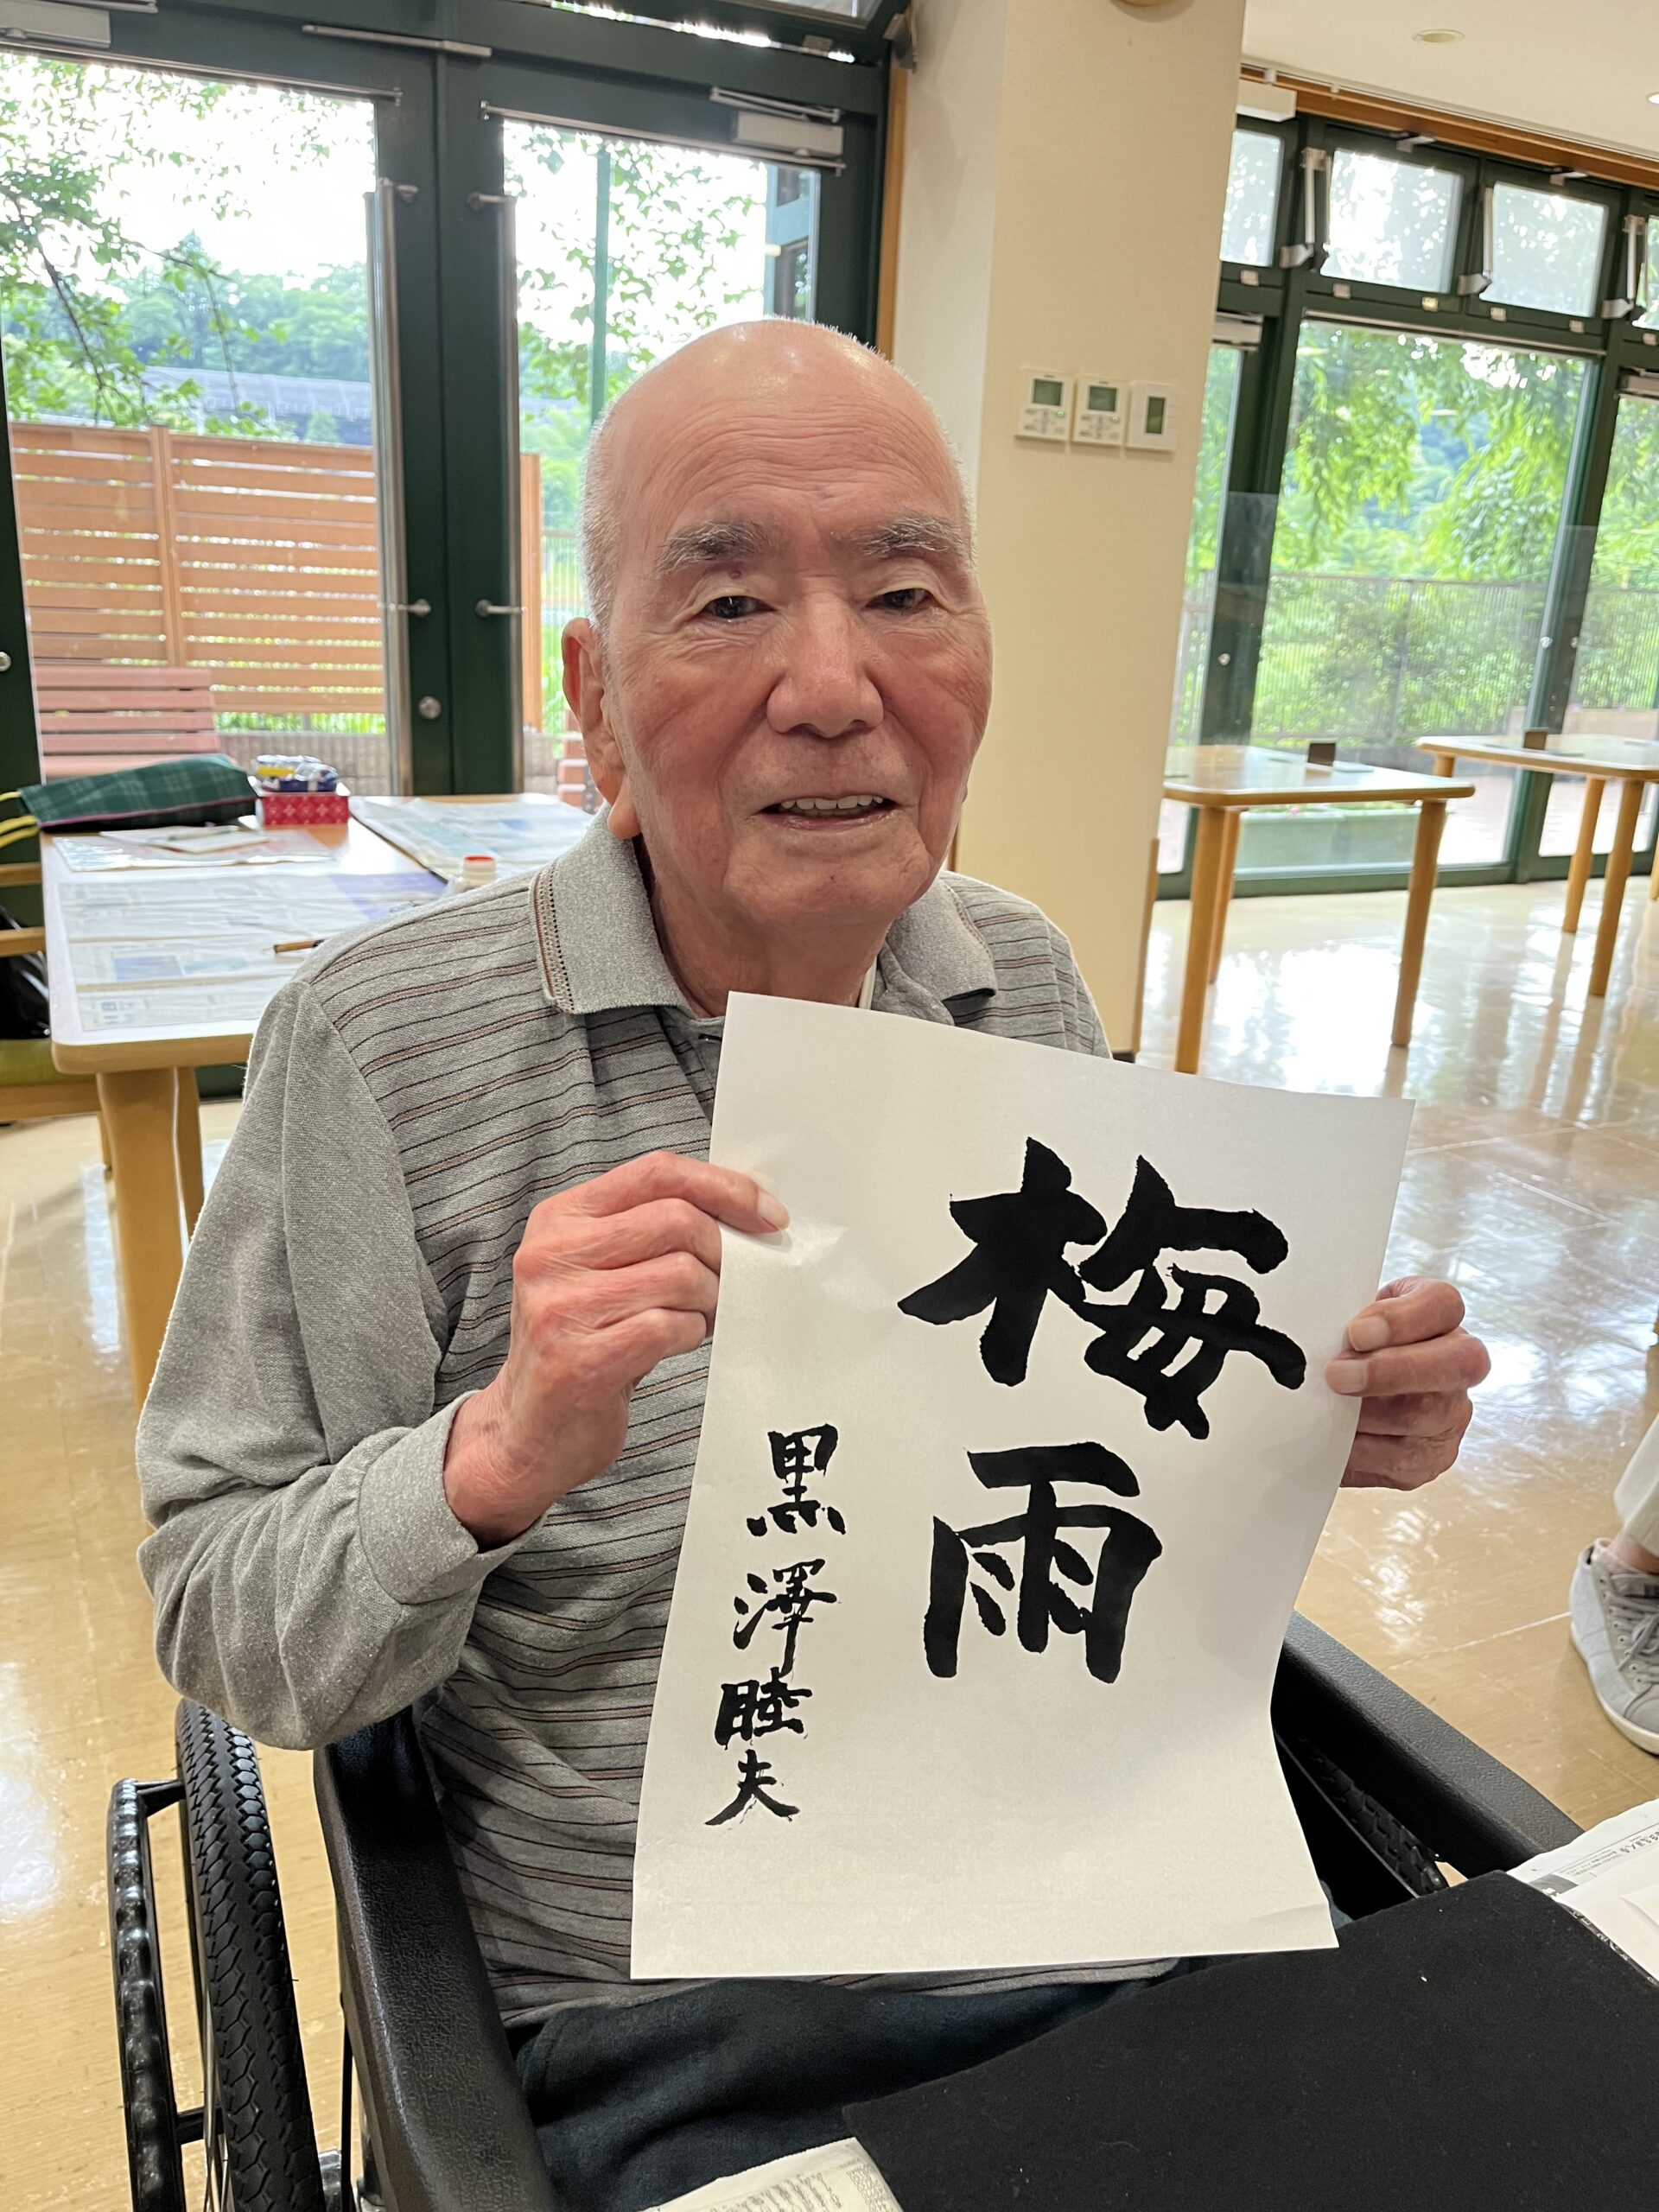 梅雨
黒澤睦夫